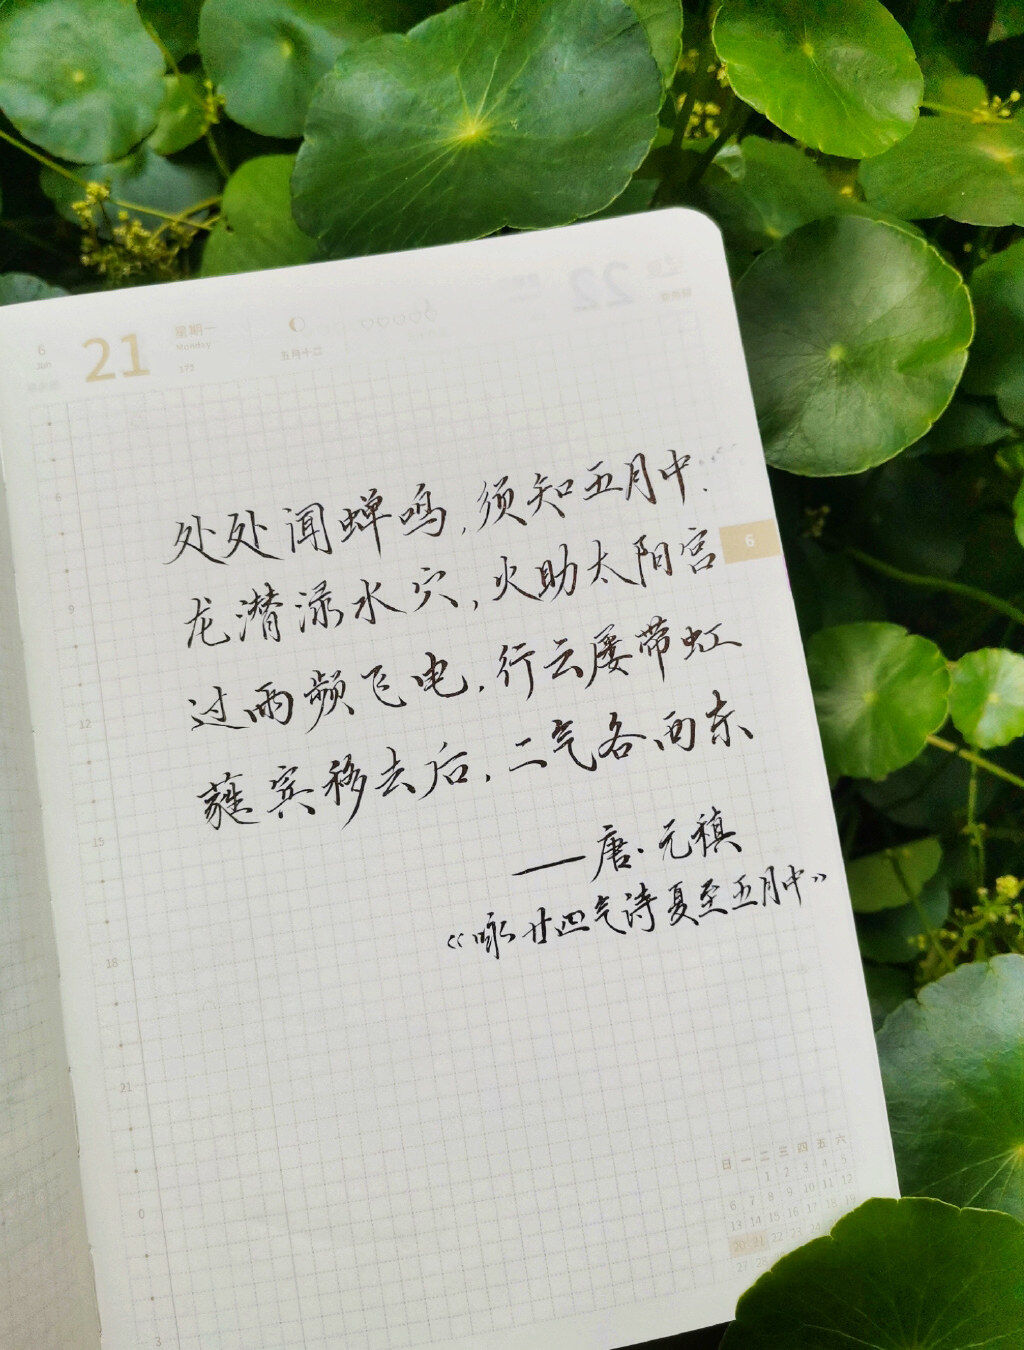 6 21 星期一
Jun Monday
173 五月十二
处处闻蝉鸣,须知五月中.
龙潜渌水穴,火助太阳宫
6
过雨频飞电,行云屡带虹
蕤宾移去后,二气各西东
——唐·元禛
《咏廿四气诗夏至五月中》
6
9
12
15
18
21
0
3
日 一 二 三 四 五 六
1 2 3 4 5
6 7 8 9 10 11 12
13 14 15 16 17 18 19
20 21 22 23 24
27 28